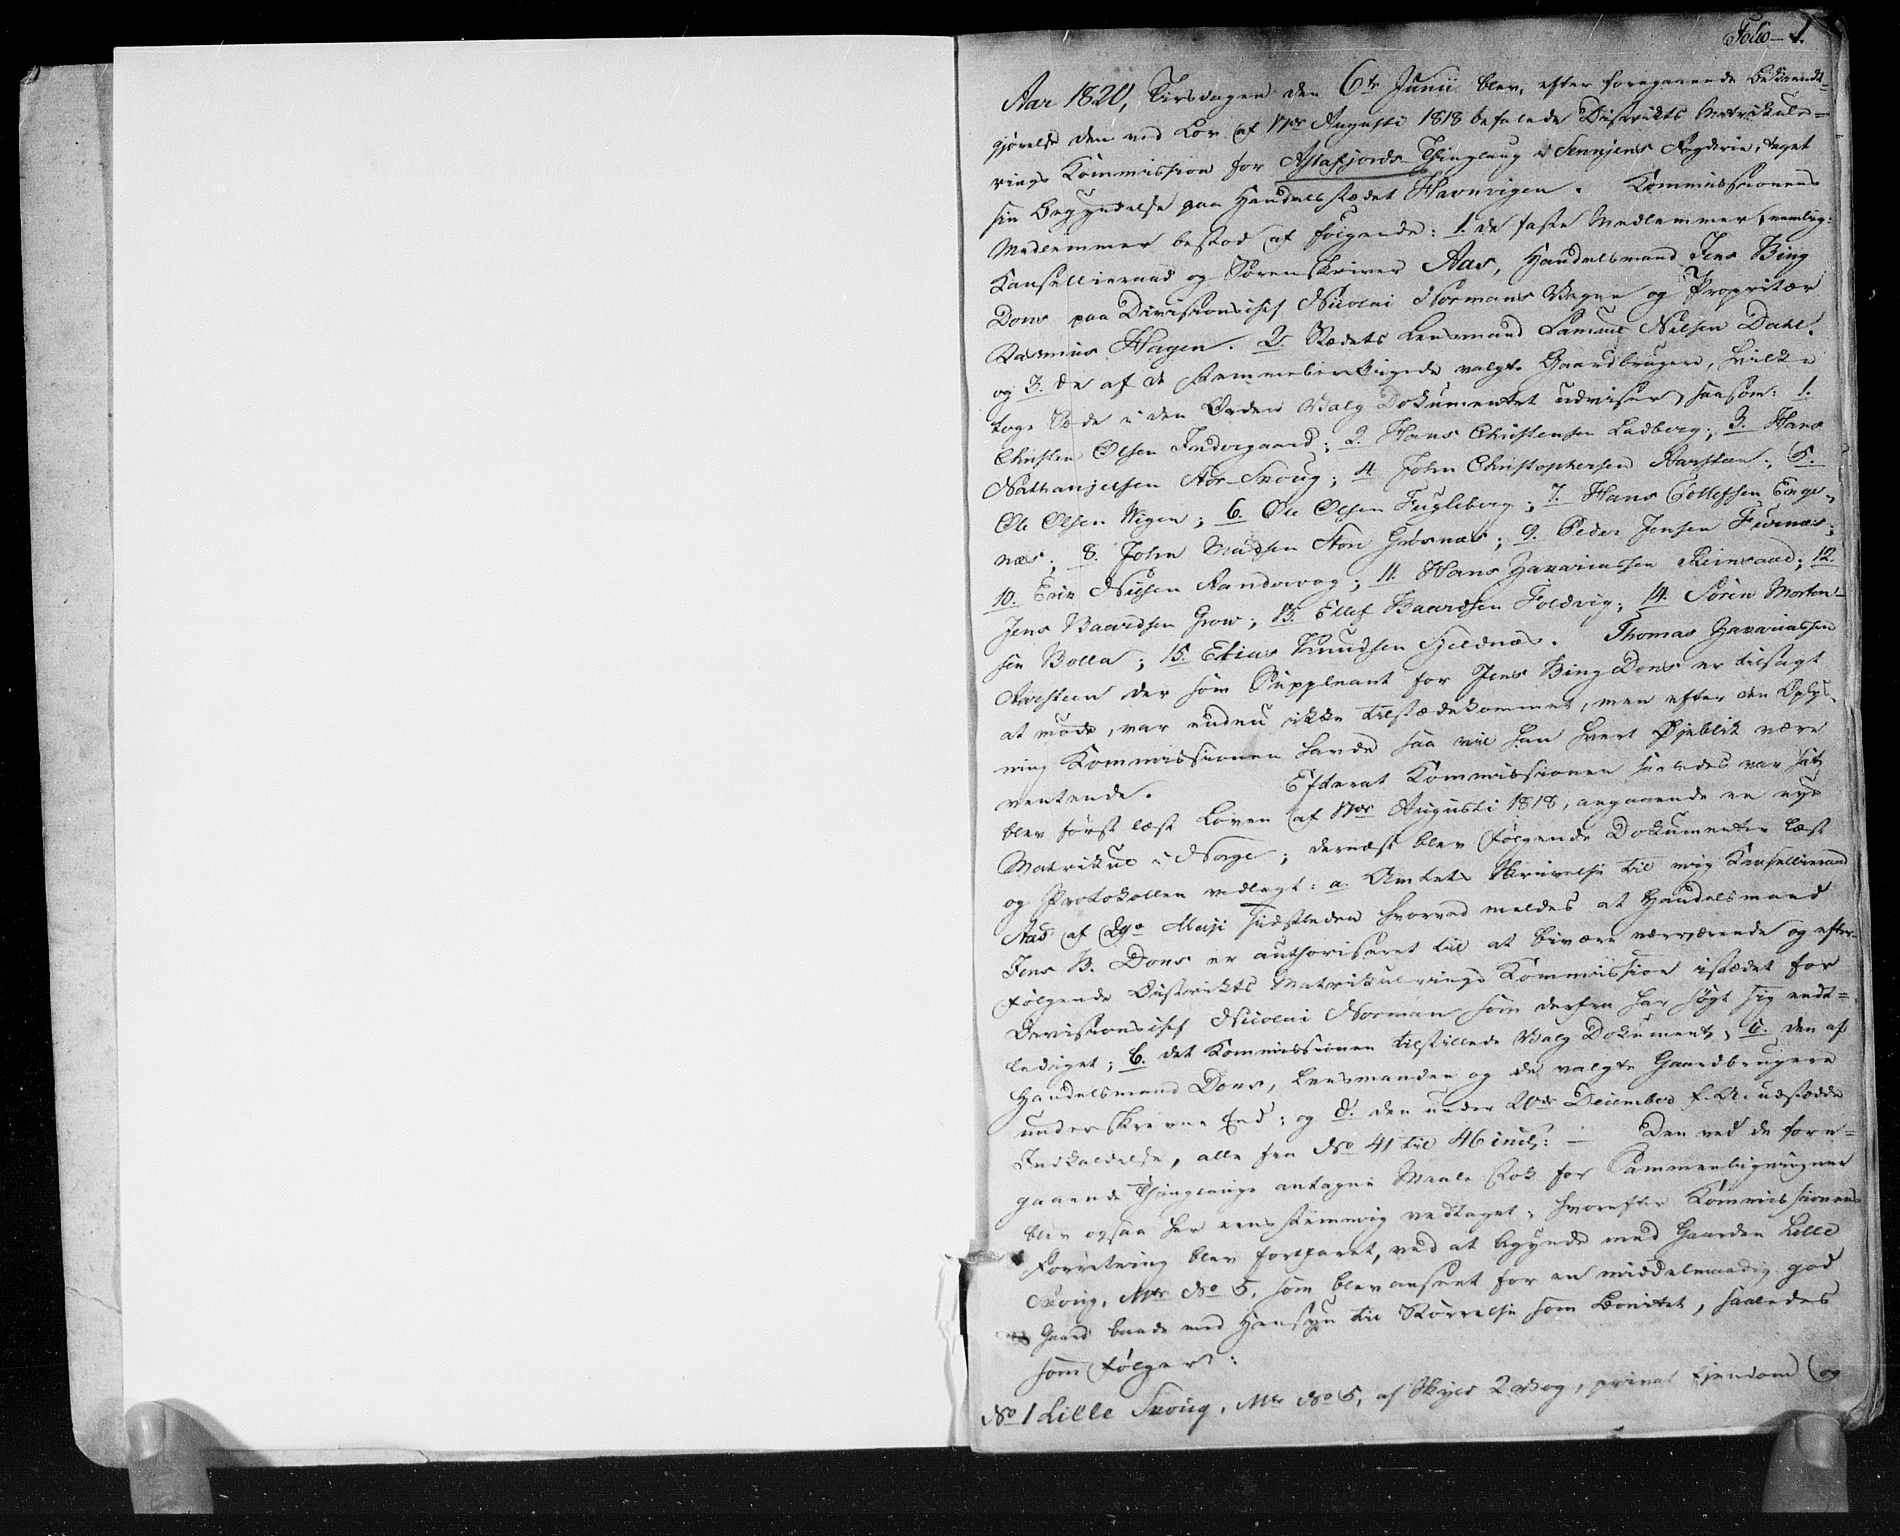 Folio 1.
Aar 1820, Tirsdagen den 6te Junii blev, efter foregaaende Bekiendt-
gjørelse den ved Lov af 17de Augusti 1818 befalede Distrikts Matrikule-
rings Kommission for Astafjords Thinglaug i Senniens Fogderie, taget
sin Begyndelse paa Handelsstædet Havnvigen. Kommissionens
Medlemmer bestod af følgende: 1. de faste Medlemmer, nemlig:
Kanselliraad og Sorenskriver Aas, Handelsmand Jens Bing
Dons paa Divisionschef Nicolai Normans Vegne og Proprietær
Rasmus Hagen. 2. Stædets Lensmand Samuel Nilsen Dahl.
og 3. de af de stemmeberettigede valgte Gaardbrugere, hvilke
toge Sæde i den Orden Valg Dokumentet udviser, saasom: 1.
Christen Olsen Indergaard; 2. Hans Christensen Ladberg; 3. Hans
Nathanjelsen Stor-Skoug; 4. John Christophersen Aarsteen; 5.
Ole Olsen Wigen; 6. Ole Olsen Fugleberg; 7. Hans Ellefsen Enge-
næs; 8. John Madsen Store Grøsnæs; 9. Peder Jensen Furenæs;
10. Erik Nilsen Aandervag; 11. Hans Zakariassen Reinvaad; 12.
Jens Baardsen Grow; 13. Ellef Baardsen Foldvig; 14. Søren Morten-
sen Bolla; 15. Elias Knudsen Hildnæs. Thomas Zakariassen
Aarsteen der som Suppleant for Jens Bing Dons er tilsagt
at møde, var endnu ikke tilstædekommet, men efter den Oplys-
ning Kommissionen havde saa vil han hvert Øjeblik være
ventende. Efterat Kommissionen saaledes var sat,
blev først læst Loven af 17de Augusti 1818, angaaende en nye
Matrikul i Norge; dernæst blev følgende Dokumenter læst
og Protokollen vedlagt: a. Amtets Skrivelse til mig Kanselliraad
Aas af 29de Maji sidstleden hvorved meldes at Handelsmand
Jens B. Dons er authoriseret til at bivære nærværende og efter-
følgende Distrikts Matrikulerings Kommission istædet for
Divisionschef Nicolai Norman som derfra har søgt sig endt-
lediget; b. det Kommissionen tilstillede Valg Dokument; c. den af
Handelsmand Dons, Lensmanden og de valgte Gaardbrugere
underskrevne Eed; og d. den under 20de December f. A. udstædde
Indkaldelse, alle fra No 41 til 46 incl: — Den ved de fore-
gaaende Thinglauge antagne Maale Stok for Sammenligningen
blev ogsaa her eensstemmig vedtaget; hvorefter Kommissionens
Forretning blev fortsaret, ved at begynde med Gaarden Lille
Skoug, Mtr No 5, som blev anseet for en middelmaadig god
Gaard baade med Hensyn til Størrelse som Bonitet, saaledes
som følger:
No 1 Lille Skoug, Mtr No 5, af Skyld 2 Vog, privat Ejendom og